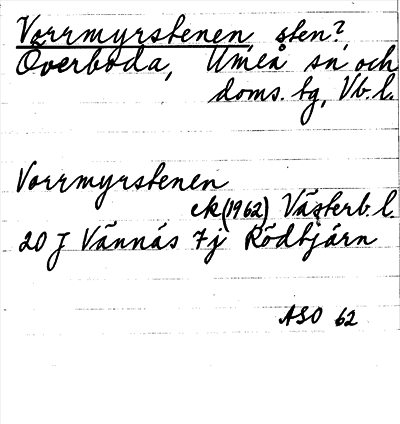 Vorrmyrstenen, sten?,
Överboda, Umeå sn och
doms. tg, Vb. l.
Vorrmyrstenen
ek (1962) Västerb. l.
20 J Vännäs 7j Rödbjärn
ASO 62